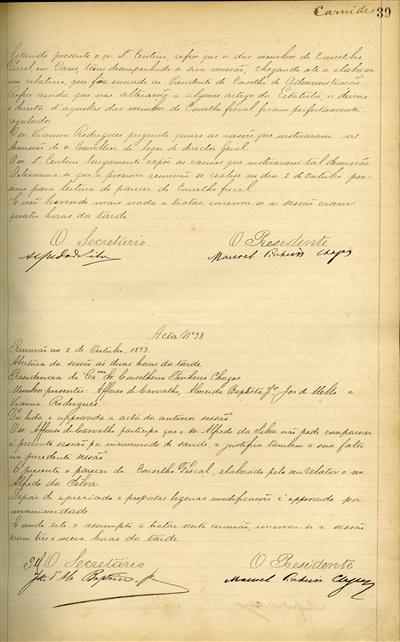 Carnide 39
Estando presente o sr. L. Centeno, refere que os dois membros do Conselho
Fiscal em Paris, teem desempenhado a sua missão, chegando até a elaborar
um relatorio, que foi enviado ao Presidente do Conselho de Administração.
Refere ainda que nas alterações a alguns artigos do Estatuto, os deveres
e direitos d'aquelles dois membros do Conselho fiscal ficam perfeitamente
regulados.
O sr. Vianna Rodrigues pergunta quaes as rasões que motivaram as
demissão de o Conselheiro do logar de director Geral.
O sr. L. Centeno largamente expõe as causas que motivaram tal demissão
Determina-se que a proxima reunião se realize no dia 2 de Outubro pro-
ximo para leitura do parecer do Conselho fiscal
E não havendo mais nada a tratar encerrou-se a sessão eram
quatro horas da tarde.
O Secretário O Presidente
Alfredo da Silva Manoel Pinheiro Chagas
Acta Nº 38
Reunião no 2 de Outubro, 1893
Abertura da sessão ás duas horas da tarde
Presidencia do Exmo Sr. Conselheiro Pinheiro Chagas
Membros presentes: Affonso de Carvalho, Almeida Baptista Jor, Jose de Mello e
Vianna Rodrigues.
Foi lida e approvada a acta da anterior sessão
O sr. Affonso de Carvalho participa que o sr. Alfredo da Silva não pode comparecer
á presente sessão por incommodo de saude, e justifica tambem a sua falta
na precedente sessão
É presente o parecer do Conselho Fiscal, elaborado pelo seu relator o sr.
Alfredo da Silva.
Depois de apreciado e propostas ligeiras modificações é approvado por
unanimidade
E sendo este o assumpto a tratar nesta reunião, encerrou-se a sessão
eram tres e meia horas da tarde.
O Secretário O Presidente
Manoel Pinheiro Chagas